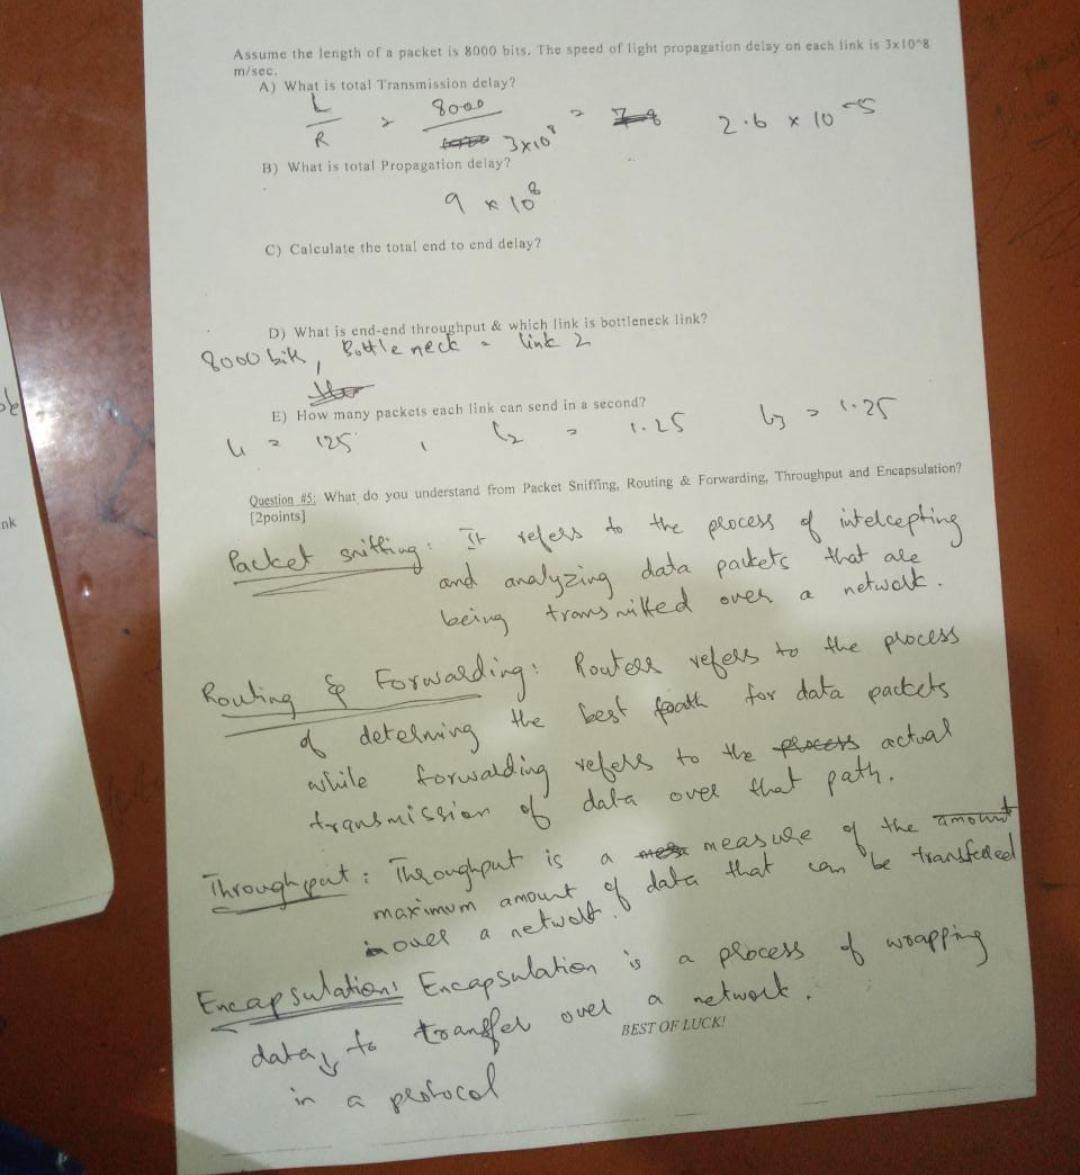 Assume the length of a packet is 8000 bits. The speed of light propagation delay on each link is 3x10^8
m/sec.
A) What is total Transmission delay?
L/R = 8000 / 3x10^8 = 2.6 x 10^-5
B) What is total Propagation delay?
9 x 10^8
C) Calculate the total end to end delay?
D) What is end-end throughput & which link is bottleneck link?
8000 bits, Bottle neck = link 2
E) How many packets each link can send in a second?
L1 = 125, L2 = 1.25 L3 = 1.25
Question #5: What do you understand from Packet Sniffing, Routing & Forwarding, Throughput and Encapsulation?
[2points]
Packet sniffing: It refers to the process of intercepting
and analyzing data packets that are
being transmitted over a network.
Routing & Forwarding: Routers refers to the process
of determing the best path for data packets
while forwarding refers to the process actual
transmission of data over that path.
Throughput: Throughput is a measure of the amount
maximum amount of data that can be transfered
over a network.
Encapsulation: Encapsulation is a process of wrapping
data, to transfer over a network.
in a protocol
BEST OF LUCK!
nk